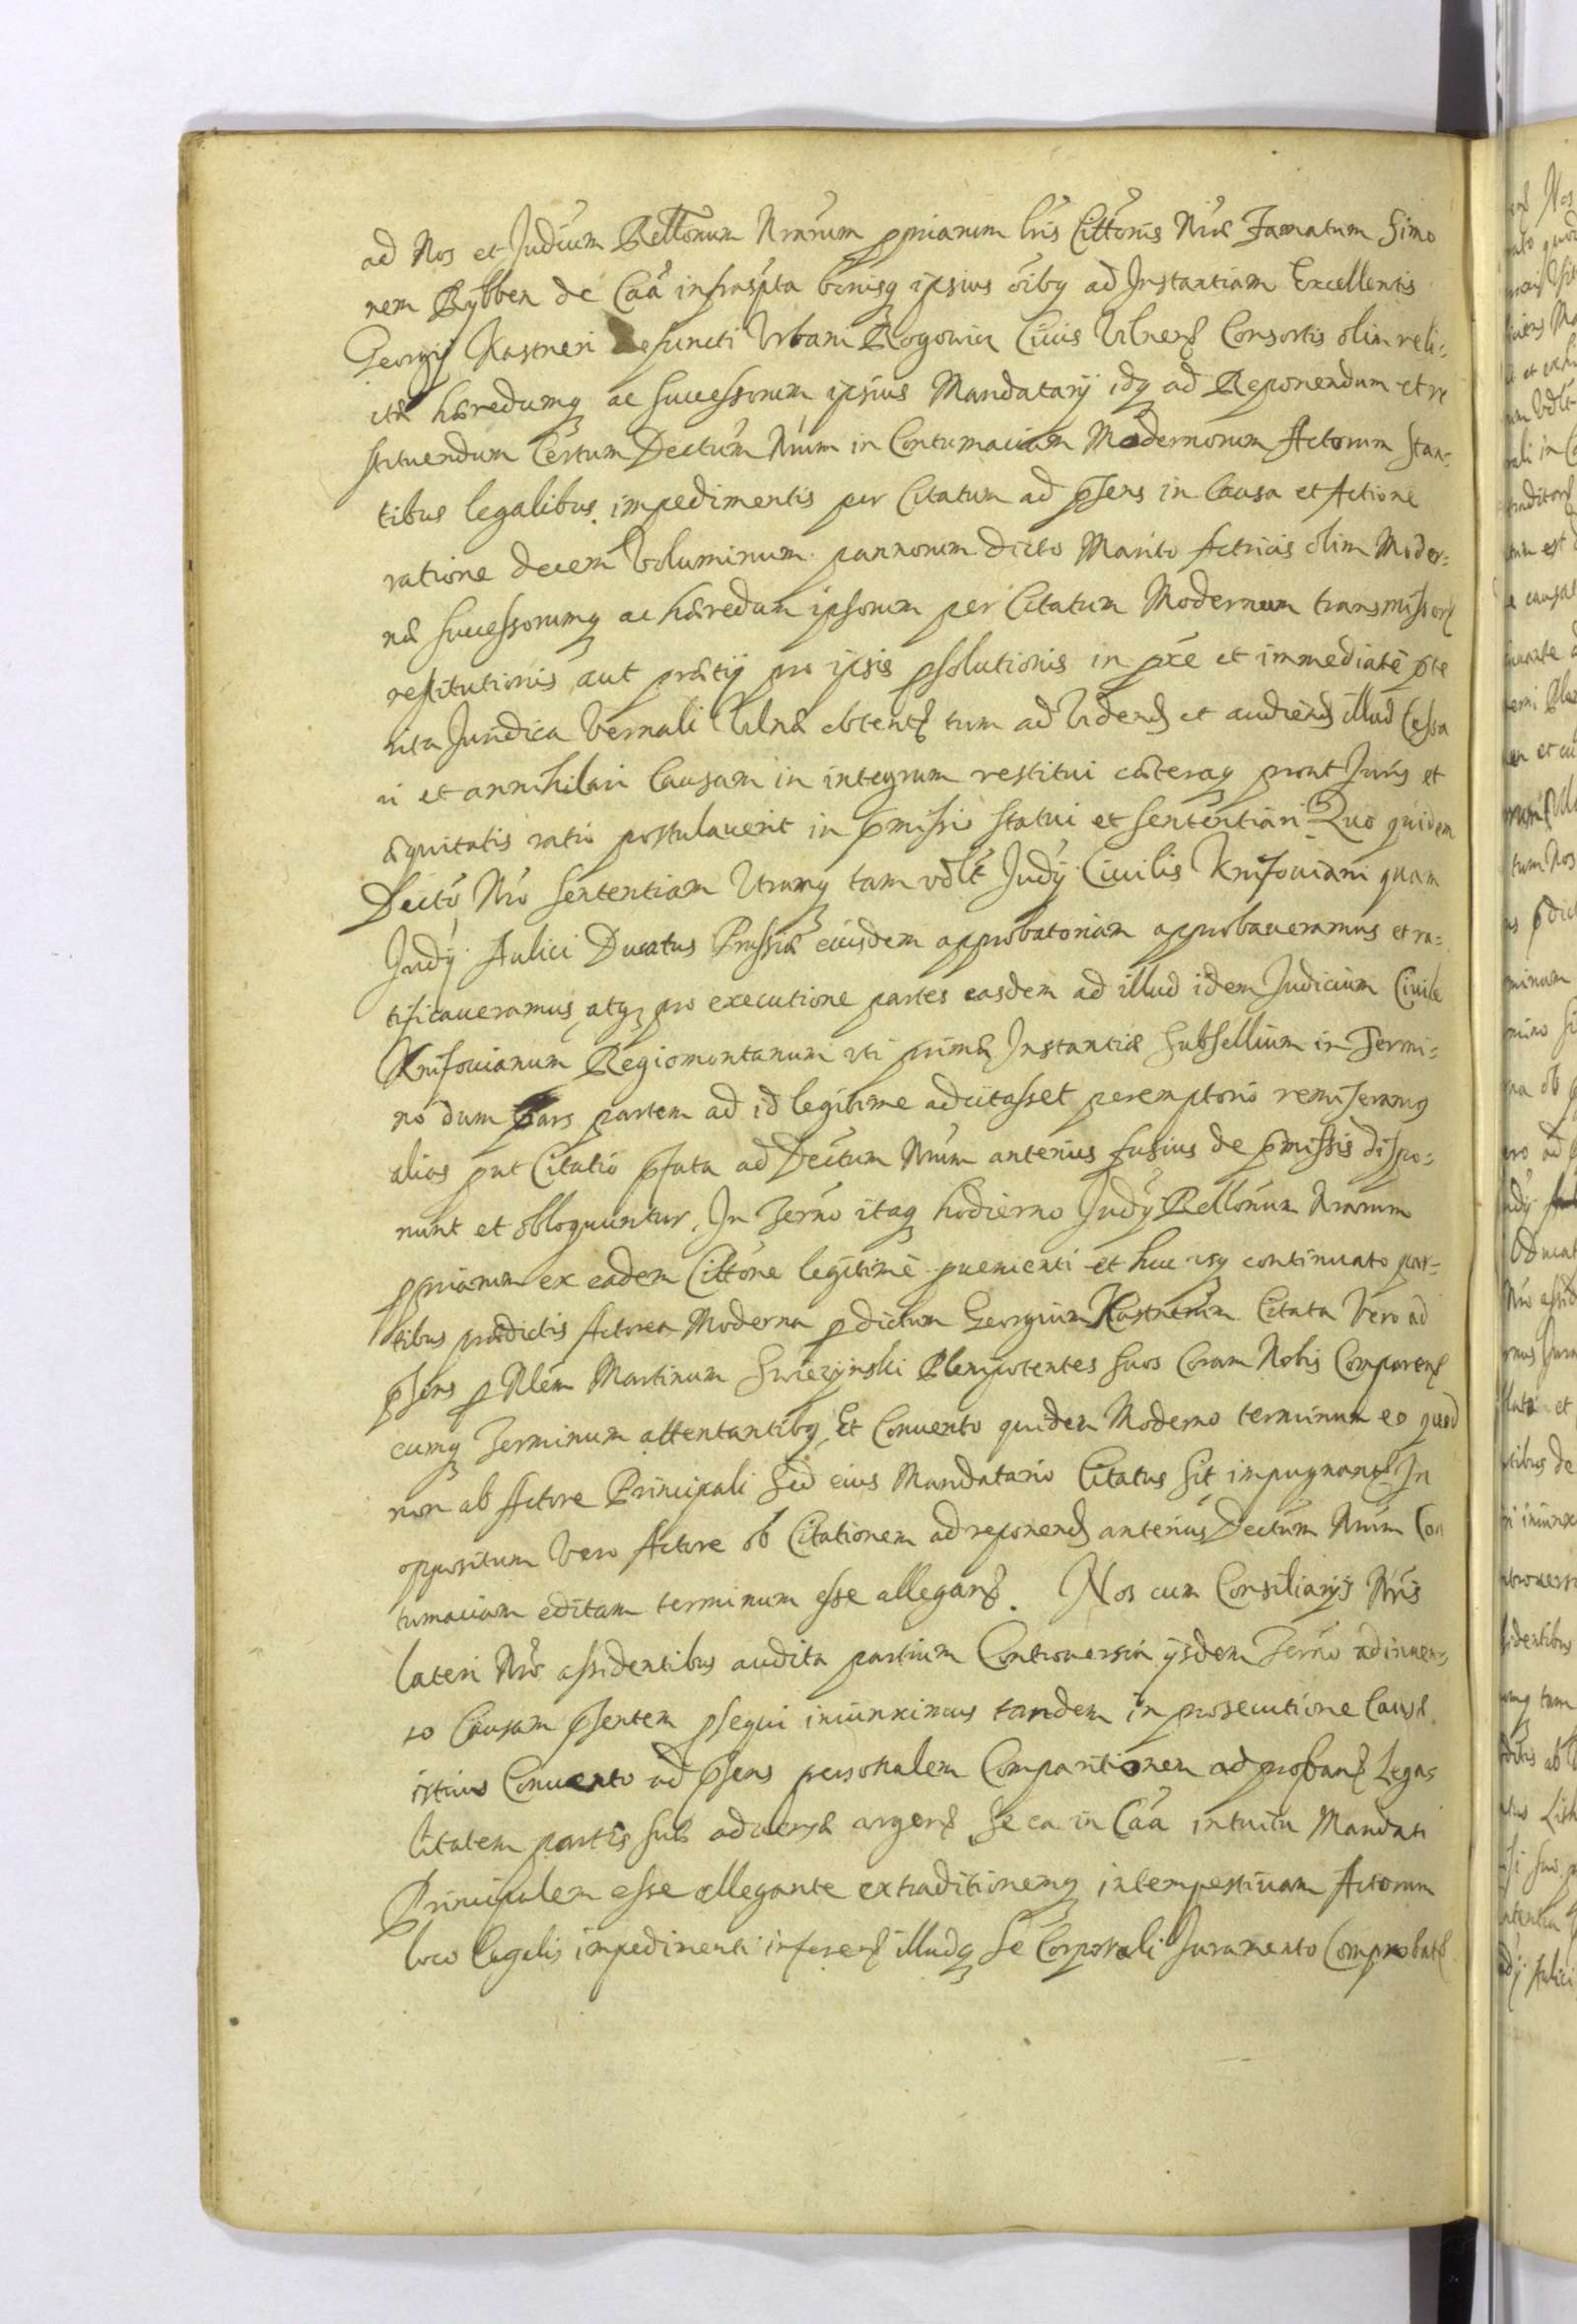 ad Nos et Judicium Rellõnum Nrarum ppriarum lris Cittõnis Nræ Famatum Simo
nem Rybben de Caâ infrascpta bonisq ipsius oibq ad Instantiam Excellentis
Georgij Kastneri defuncti Urbani Rogowicz Civis Vilnens Consortis olim reli:
ctæ hæredumq ac successorum ipsius Mandatarij idq ad Reponendum et re
stituendum Certum Dectum Nrum in Contumaciam Modernorum Actorum stan:
tibus legalibus impedimentis per Citatum ad psens in Causa et Actione
ratione decem Voluminum pannorum dicto Marito Actricis olim Moder:
næ successorumq ac hæredum ipsorum per Citatum Modernum transmissor
restitutionis aut prætij pro ipsis psolutionis in pce et immediatè pte
rita Juridica Vernali Vilnæ obtent tum ad Videnď et audienď illud Cessa
ri et annihilari Causam in integrum restitui cæteraq prout Juris et
æquitatis ratio postulaverit in pmissis statui et sententiari Quo quidem
Dectô Nrô sententiam Utramq tam vdlt Judÿ Civilis Knifoviani quam
Judÿ Aulici Ducatus Prussiæ eiusdem approbatoriam approbaveramus et ra:
tificaveramus atq pro executione partes easdem ad illud idem Judicium Civile
Knifovianum Regiomontanum uti primæ Instantiæ Subsellium in Termi:
no dum pars partem ad id legitime adcitasset peremptorio remiseramq
alias put Citatio pfata ad Dectum Nrum anterius fusius de pmissis dispo:
nunt et obloquuntur. In Termo itaq hodierno Judÿ Rellõnum Nrarum
ppriarum ex eadem Cittõne legitimè pvenienti et huc usq continuato par:
tibus prædictis Actorea Moderna p dictum Georgium Kastnerum Citata Vero ad
psens p Nlem Martinum Swiezynski Plenipotentes suos Coram Nobis Comparens
eumq Terminum attentantibq Et Convento quidem Moderno terminum eo quod
non ab Actore Principali sed eius Mandatario Citatus sit impugnant In
oppositum Vero Actore ob Citationem ad reponenď anterius Dectum Nrum Con
tumaciam editam terminum esse allegans. Nos cum Consiliarijs Nris
lateri Nrô assidentibus audita partium Controversia ijsdem Termo adinven:
to Causam psentem psequi iniunximus tandem in prosecutione Causæ
istius Convento ad psens personalem Comparitionem ad proband Lega:
litatem partis sub adversæ urgens se ea in Caâ intuitu Mandati
Principalem esse allegante extraditionemq intempestivam Actorum
loco legalis impedimenti inferens illudq se Corporali Juramento Comprobat